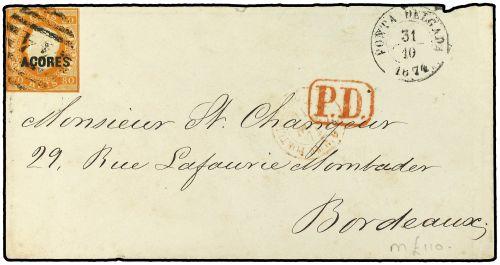 AÇORES
PONTA DELGADA
31
10
1874
P.D.
Monsieur St. Changeur
29, Rue Lafaurie Mombader
Bordeaux